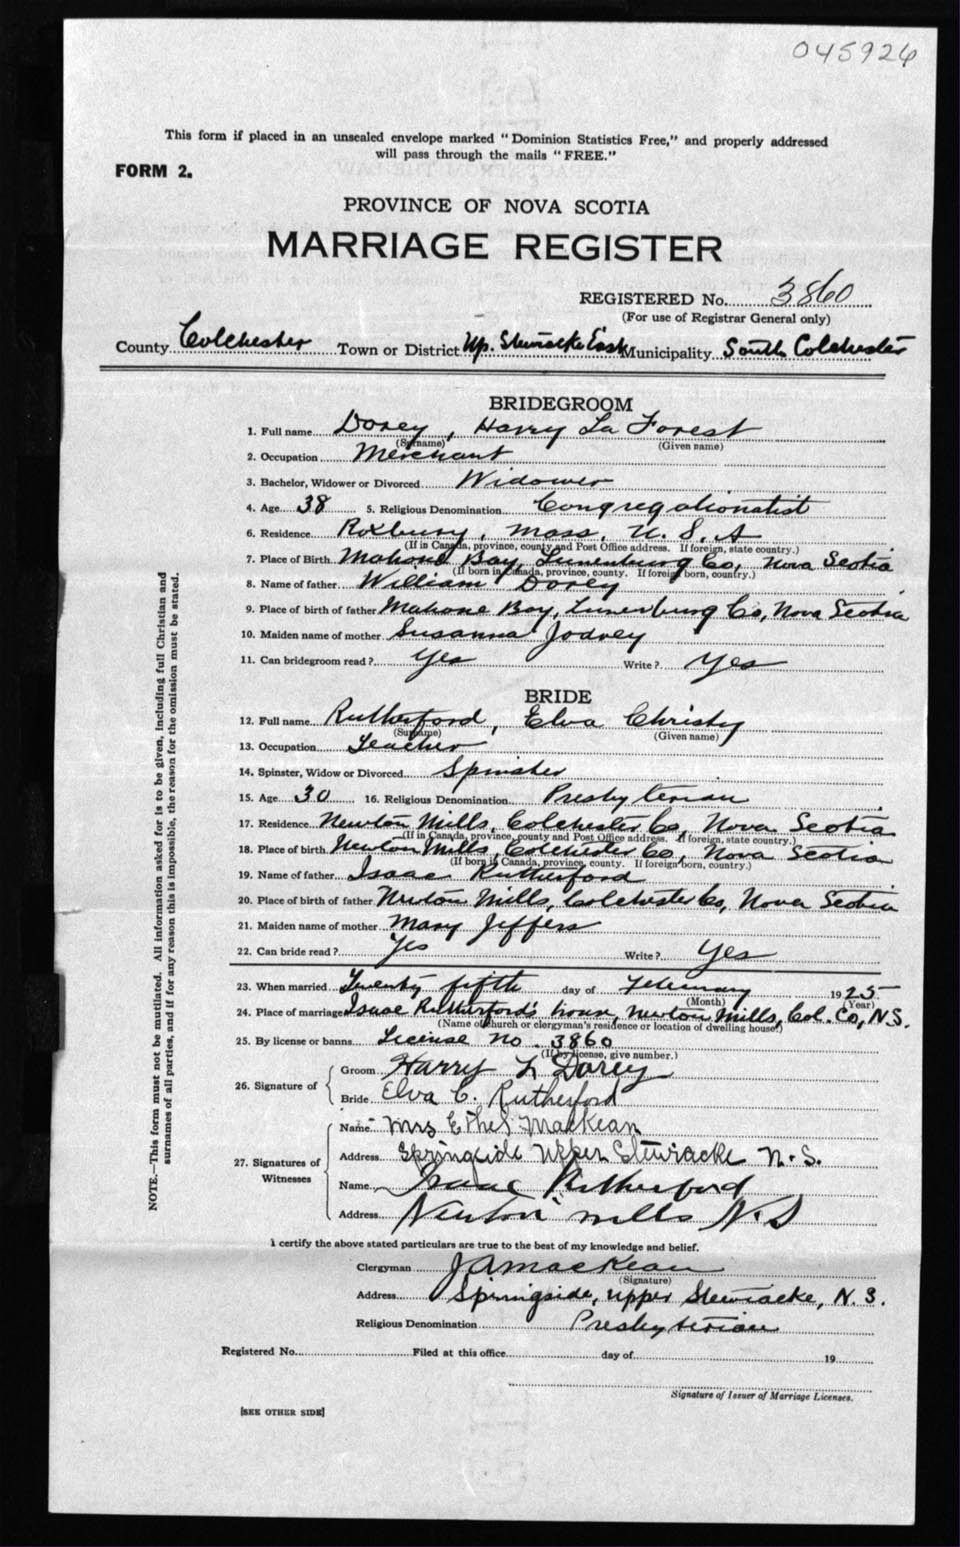 045926
This form if placed in an unsealed envelope marked "Dominion Statistics Free," and properly addressed
will pass through the mails "FREE."
FORM 2.
PROVINCE OF NOVA SCOTIA
MARRIAGE REGISTER
REGISTERED No. 3860
(For use of Registrar General only)
County Colchester Town or District Up. Stewiacke East Municipality South Colchester
BRIDEGROOM
1. Full name Dorey, Harry La Forest
(Surname) (Given name)
2. Occupation Merchant
3. Bachelor, Widower or Divorced Widower
4. Age 38 5. Religious Denomination Congregationalist
6. Residence Roxbury, Mass, U. S. A
(If in Canada, province, county and Post Office address. If foreign, state country.)
7. Place of Birth Mahone Bay, Lunenburg Co, Nova Scotia
(If born in Canada, province, county. If foreign born, country.)
8. Name of father William Dorey
9. Place of birth of father Mahone Bay, Lunenburg Co, Nova Scotia
10. Maiden name of mother Susanna Jodrey
11. Can bridegroom read? Yes Write? Yes
BRIDE
12. Full name Rutherford, Elva Christy
(Surname) (Given name)
13. Occupation Teacher
14. Spinster, Widow or Divorced Spinster
15. Age 30 16. Religious Denomination Presbyterian
17. Residence Newton Mills, Colchester Co, Nova Scotia
(If in Canada, province, county and Post Office address. If foreign, state country.)
18. Place of birth Newton Mills, Colchester Co, Nova Scotia
(If born in Canada, province, county. If foreign born, country.)
19. Name of father Isaac Rutherford
20. Place of birth of father Newton Mills, Colchester Co, Nova Scotia
21. Maiden name of mother Mary Jeffers
22. Can bride read? Yes Write? Yes
23. When married Twenty fifth day of February 1925
(Month) (Year)
24. Place of marriage Isaac Rutherford's house, Newton Mills, Col. Co, N.S.
(Name of church or clergyman's residence or location of dwelling house)
25. By license or banns License No. 3860
(If by license, give number.)
26. Signature of
Groom Harry L Dorey
Bride Elva C. Rutherford
27. Signatures of Witnesses
Name Mrs Ethel MacKean
Address Springside Upper Stewiacke N.S.
Name Isaac Rutherford
Address Newton Mills N.S
I certify the above stated particulars are true to the best of my knowledge and belief.
Clergyman J A MacKean
(Signature)
Address Springside, Upper Stewiacke, N. S.
Religious Denomination Presbyterian
Registered No. Filed at this office day of 19
Signature of Issuer of Marriage Licenses.
[SEE OTHER SIDE]
NOTE.—This form must not be mutilated. All information asked for is to be given, including full Christian and
surnames of all parties, and if for any reason this is impossible, the reason for the omission must be stated.